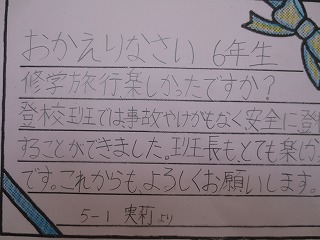 おかえりなさい 6年生
修学旅行楽しかったですか?
登校班では事故やけがもなく、安全に登
することができました。班長も、とても楽しか
です。これからも、よろしくお願いします。
5-1 実莉より